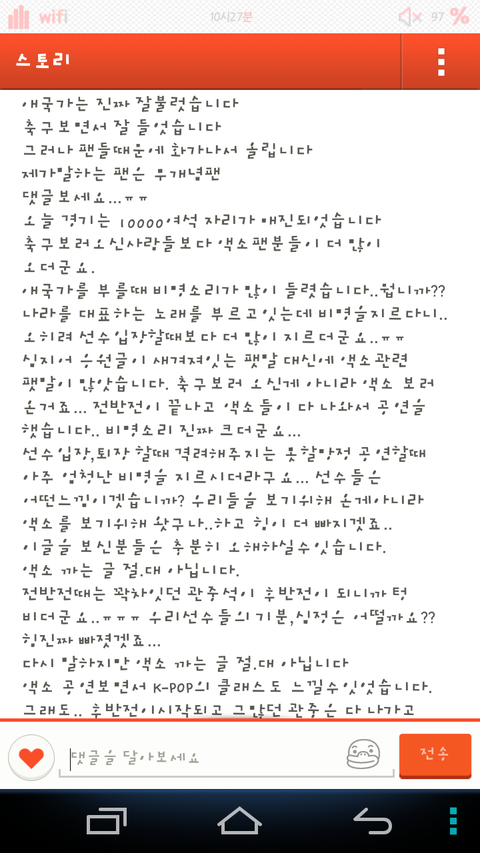 wifi
10시27분
97 %
스토리
애국가는 진짜 잘불럿습니다
축구보면서 잘 들엇습니다
그러나 팬들때문에 화가나서 올립니다
제가말하는 팬은 무개념팬
댓글보세요...ㅠㅠ
오늘 경기는 10000여석 자리가 매진되엇습니다
축구보러오신사람들보다 액소팬분들이 더 많이
오더군요.
애국가를 부를때 비명소리가 많이 들렷습니다..웝니까??
나라를 대표하는 노래를 부르고잇는데 비명을지르다니..
오히려 선수입장할때보다 더 많이 지르더군요..ㅠㅠ
심지어 응원글이 새겨져잇는 팻말 대신에 액소관련
팻말이 많앗습니다. 축구보러 오신게 아니라 액소 보러
온거죠... 전반전이 끝나고 액소들이 다 나와서 공연을
햇습니다.. 비명소리 진짜 크더군요...
선수입장,퇴장 할때 격려해주지는 못할망정 공연할때
아주 엄청난 비명을 지르시더라구요... 선수들은
어떤느낌이겟습니까? 우리들을 보기위해 온게아니라
액소를 보기위해 왓구나..하고 힘이 더 빠지겟죠..
이글을 보신분들은 충분히 오해하실수잇습니다.
액소 까는 글 절.대 아닙니다.
전반전때는 꽉차잇던 관중석이 후반전이 되니까 텅
비더군요..ㅠㅠㅠ 우리선수들의기분,심정은 어떨까요??
힘진짜 빠졋겟죠...
다시 말하지만 액소 까는 글 절.대 아닙니다
액소 공연보면서 K-POP의 클래스도 느낄수잇엇습니다.
그래도.. 후반전이시작되고 그많던 관중은 다 나가고
댓글을 달아보세요
전송